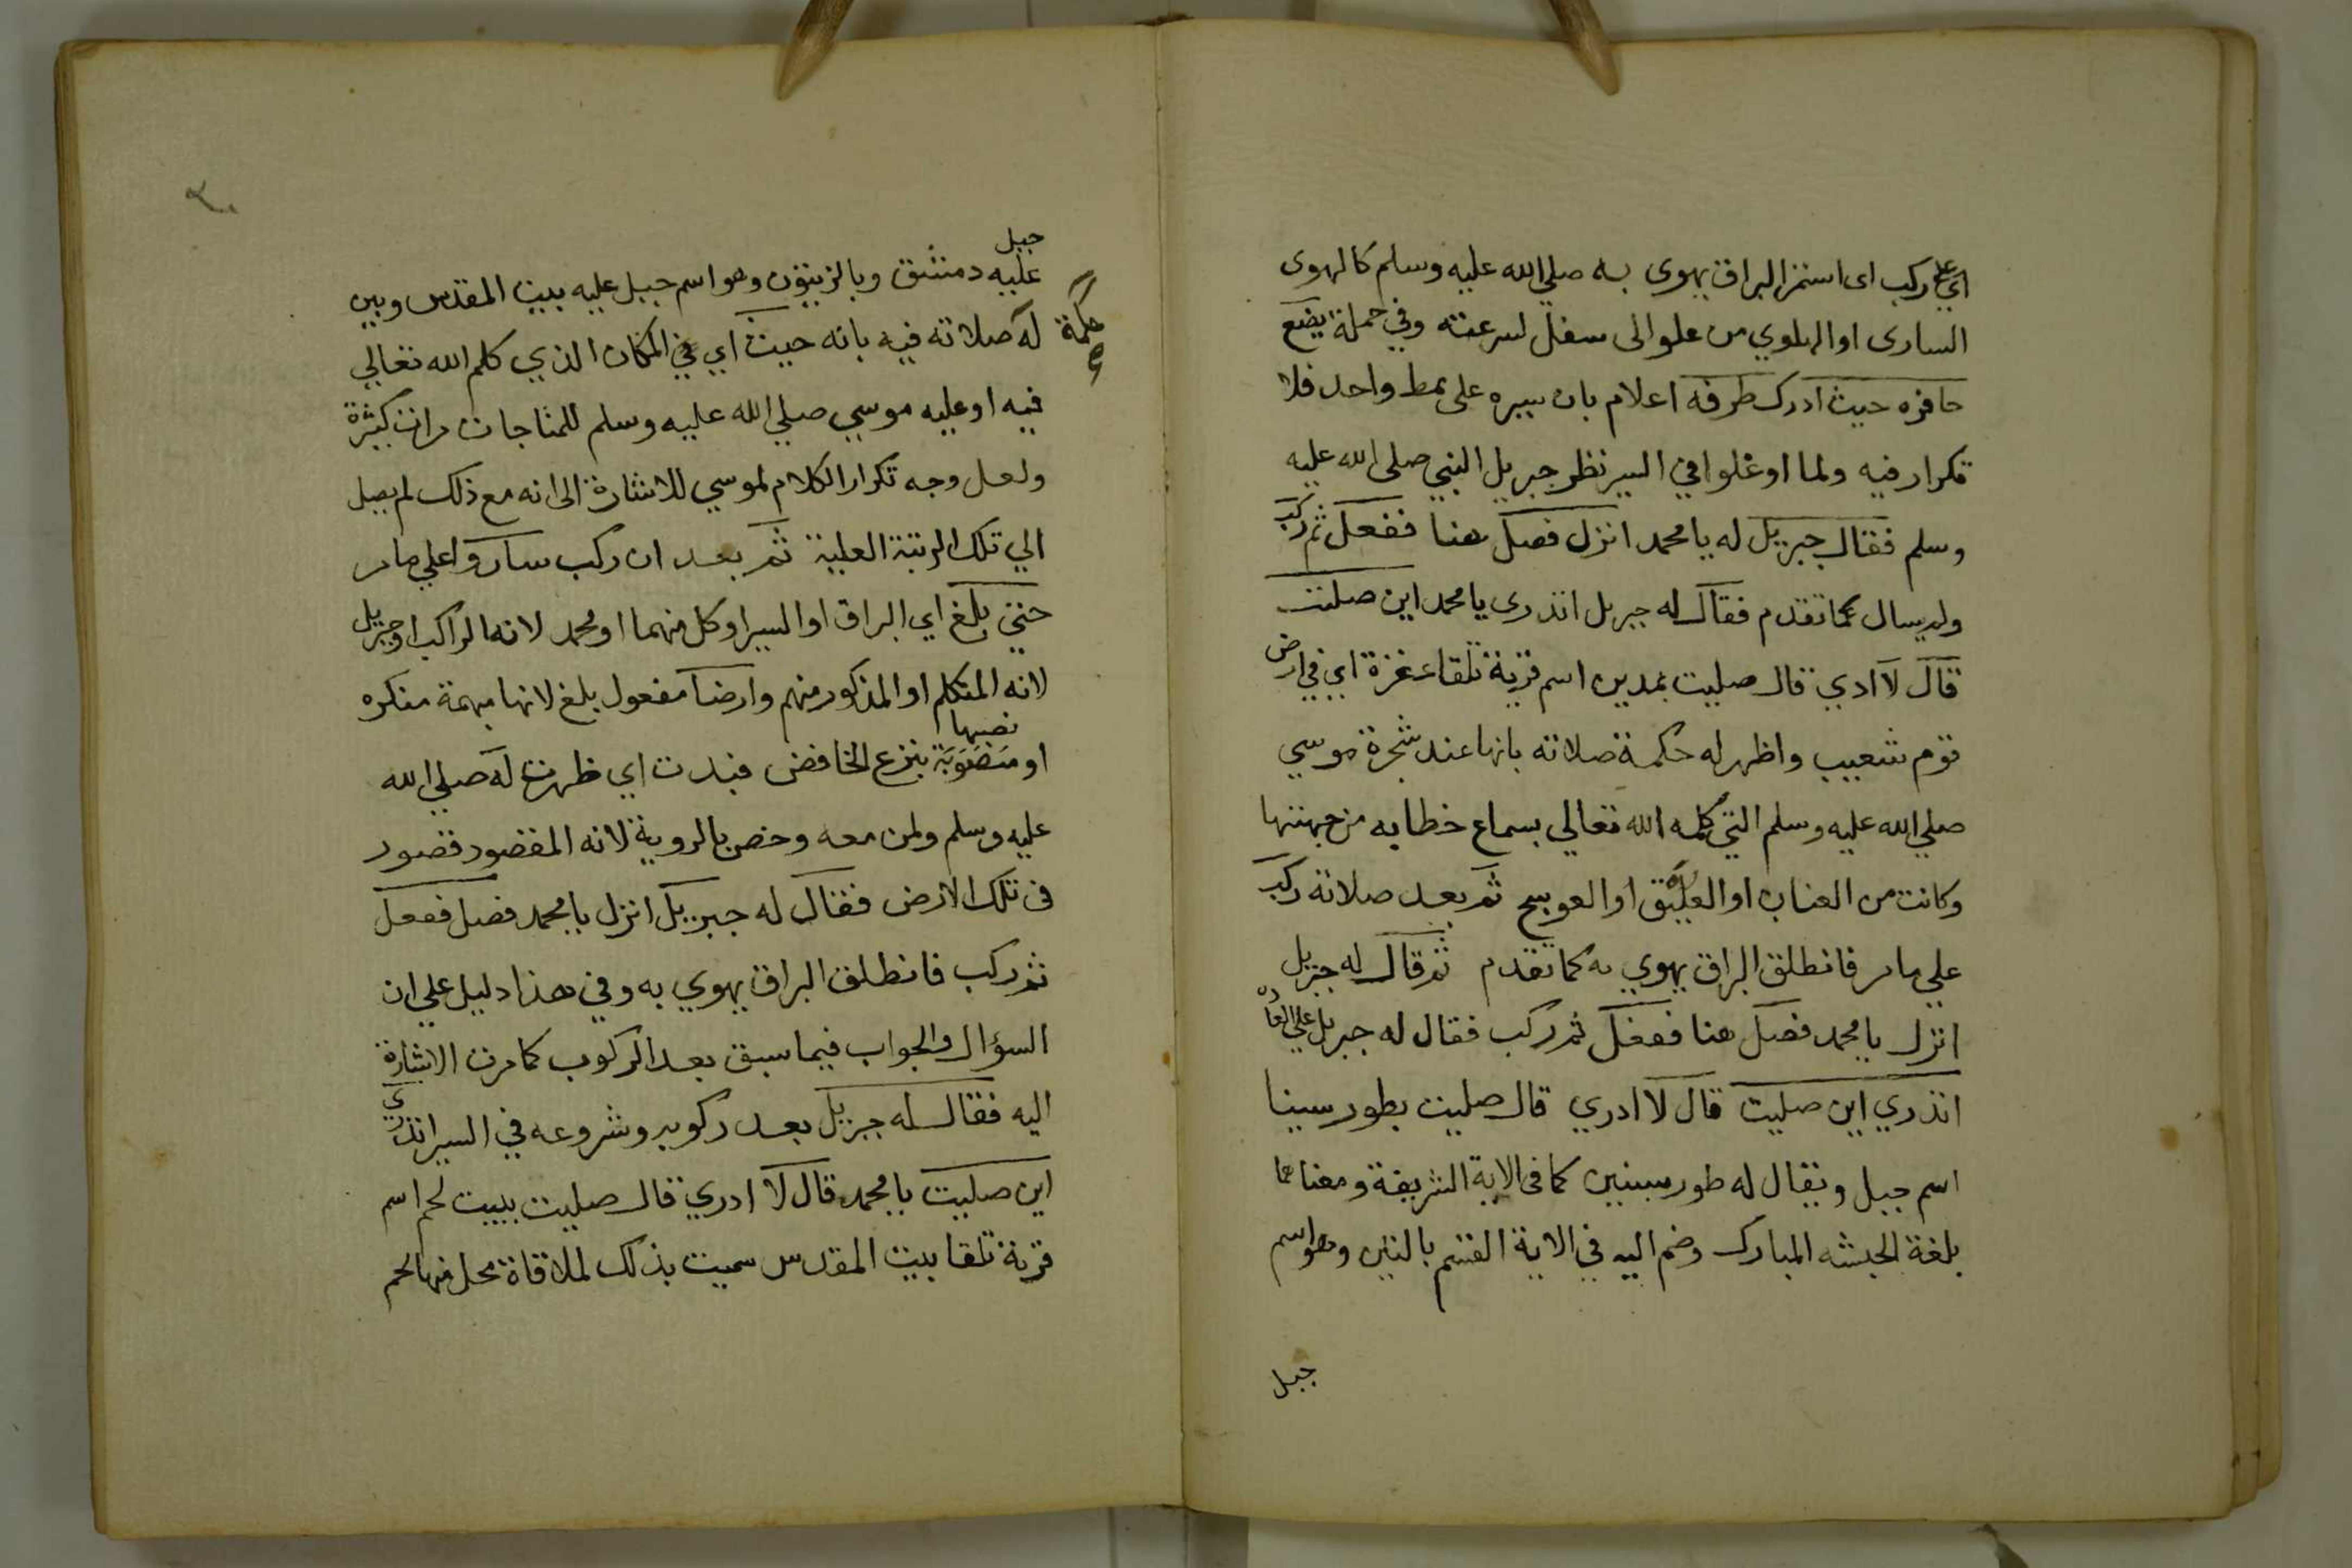 اي علي ركب اى استمر البراق يهوى به صلي الله عليه وسلم كالهوى
السارى او الهاوي من علو الى سفل لسرعته وفي جملة يضع
حافره حيث ادرك طرفه اعلام بان سيره على نمط واحد فلا
تكرار فيه ولما اوغلوا في السير نظر جبريل النبي صلى الله عليه
وسلم فقال جبريل له يا محمد انزل فصل هنا ففعل ثم ركب
ولم يسال عما تقدم فقال له جبريل اتدرى يا محمد اين صليت
قال لا ادري قال صليت بمدين اسم قرية تلقاء غزة اي في ارض
قوم شعيب واظهر له حكمة صلاته بانها عند شجرة موسي
صلي الله عليه وسلم التي كلمه الله تعالي بسماع خطابه من جهتها
وكانت من العناب او العليق او العوسج ثم بعد صلاته ركب
علي ما مر فانطلق البراق يهوي به كما تقدم ثم قال له جبريل
انزل يا محمد فصل هنا ففعل ثم ركب فقال له جبريل علي العاده
اتدري اين صليت قال لا ادري قال صليت بطور سينا
اسم جبل ويقال له طور سينين كما فى الاية الشريفة ومعناهما
بلغة الحبشه المبارك وضم اليه في الاية القسم بالتين وهو اسم
جبل
٢٠
جبل
عليه دمشق وبالزيتون وهو اسم جبل عليه بيت المقدس وبين
له صلاته فيه بانه حيث اي في المكان الذي كلم الله تعالي
حكمة
فيه او عليه موسي صلي الله عليه وسلم للمناجات مرات كثيرة
ولعل وجه تكرار الكلام لموسي للاشارة الى انه مع ذلك لم يصل
الي تلك الرتبة العلية ثم بعد ان ركب ساروا علي ما مر
حتي بلغ اي البراق او السير او كل منهما او محمد لانه الراكب او جبريل
لانه المتكلم او المذكور منهم وارضا مفعول بلغ لانها مبهمة منكره
نصبها
او منصوبة بنزع الخافض فبدت اي ظهرت له صلي الله
عليه وسلم ولمن معه وخص بالروية لانه المقصود قصور
فى تلك الارض فقال له جبريل انزل يا محمد فصل ففعل
ثم ركب فانطلق البراق يهوي به وفي هذا دليل علي ان
السؤال والجواب فيما سبق بعد الركوب كما مرت الاشارة
اليه فقال له جبريل بعد ركوبه وشروعه في السير اتدري
اين صليت يا محمد قال لا ادري قال صليت ببيت لحم اسم
قرية تلقا بيت المقدس سميت بذلك لملاقاة محل منها لحم